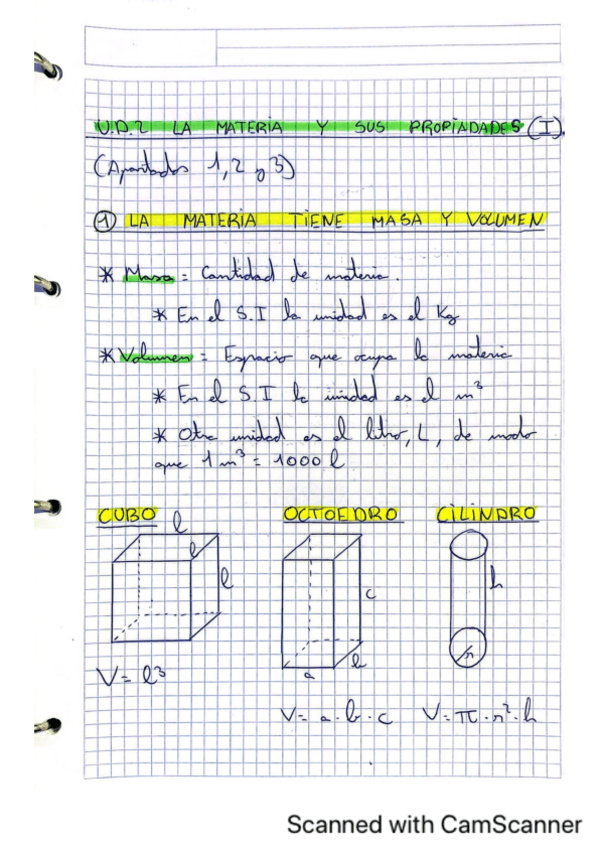 U.D.2 LA MATERIA Y SUS PROPIADADES (I).
(Apartados 1, 2 y 3)
① LA MATERIA TIENE MASA Y VOLUMEN
* Masa = Cantidad de materia.
* En el S.I la unidad es el Kg
* Volumen = Espacio que ocupa la materia
* En el S.I la unidad es el m³
* Otra unidad es el litro, L, de modo
que 1 m³ = 1000 l
CUBO OCTOEDRO CILINDRO
l
l
l
c
h
r
b
a
V = l³
V = a · b · c V = π · r² · h
Scanned with CamScanner